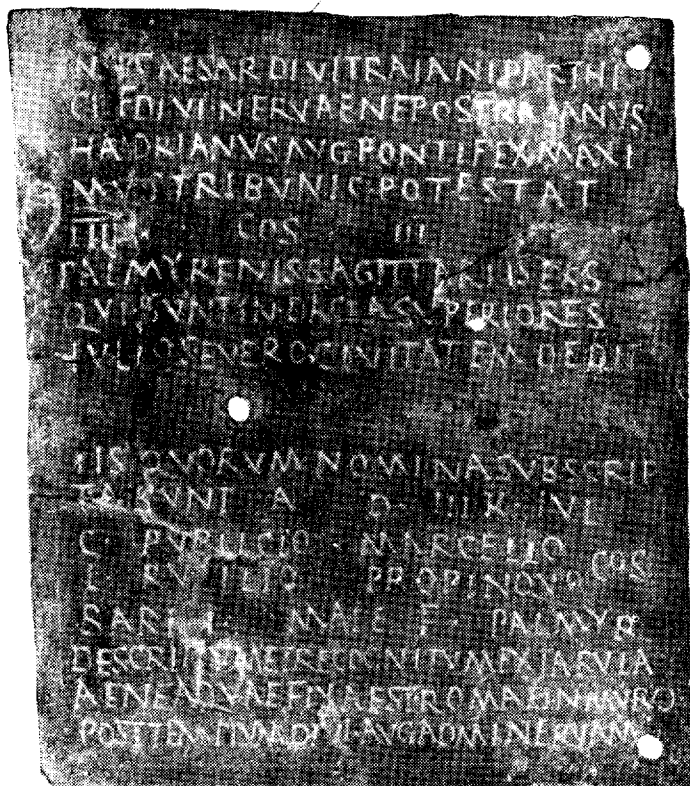 CAESAR DIVI TRAIANI PARTHI
CI F DIVI NERVAE NEPOS TRAIANVS
HADRIANVS AVG PONTIFEX MAXI
MVS TRIBVNIC POTESTAT
COS III
PALMYRENIS SAGITTARIIS
QVI SVNT IN DACIA SVPERIORE S
IVLIO SEVERO CIVITATEM DEDIT
IIS QVORVM NOMINA SVBSCRIP
TA SVNT A D IIII K IVL
C· PVBLICIO · MARCELLO
L RVTILIO PROPINQVO COS
F PALMYR
DESCRIPTVM ET RECOGNITVM EX TABVLA
AENEA QVAE FIXA EST ROMAE IN MVRO
POST TEMPLVM DIVI AVG AD MINERVAM